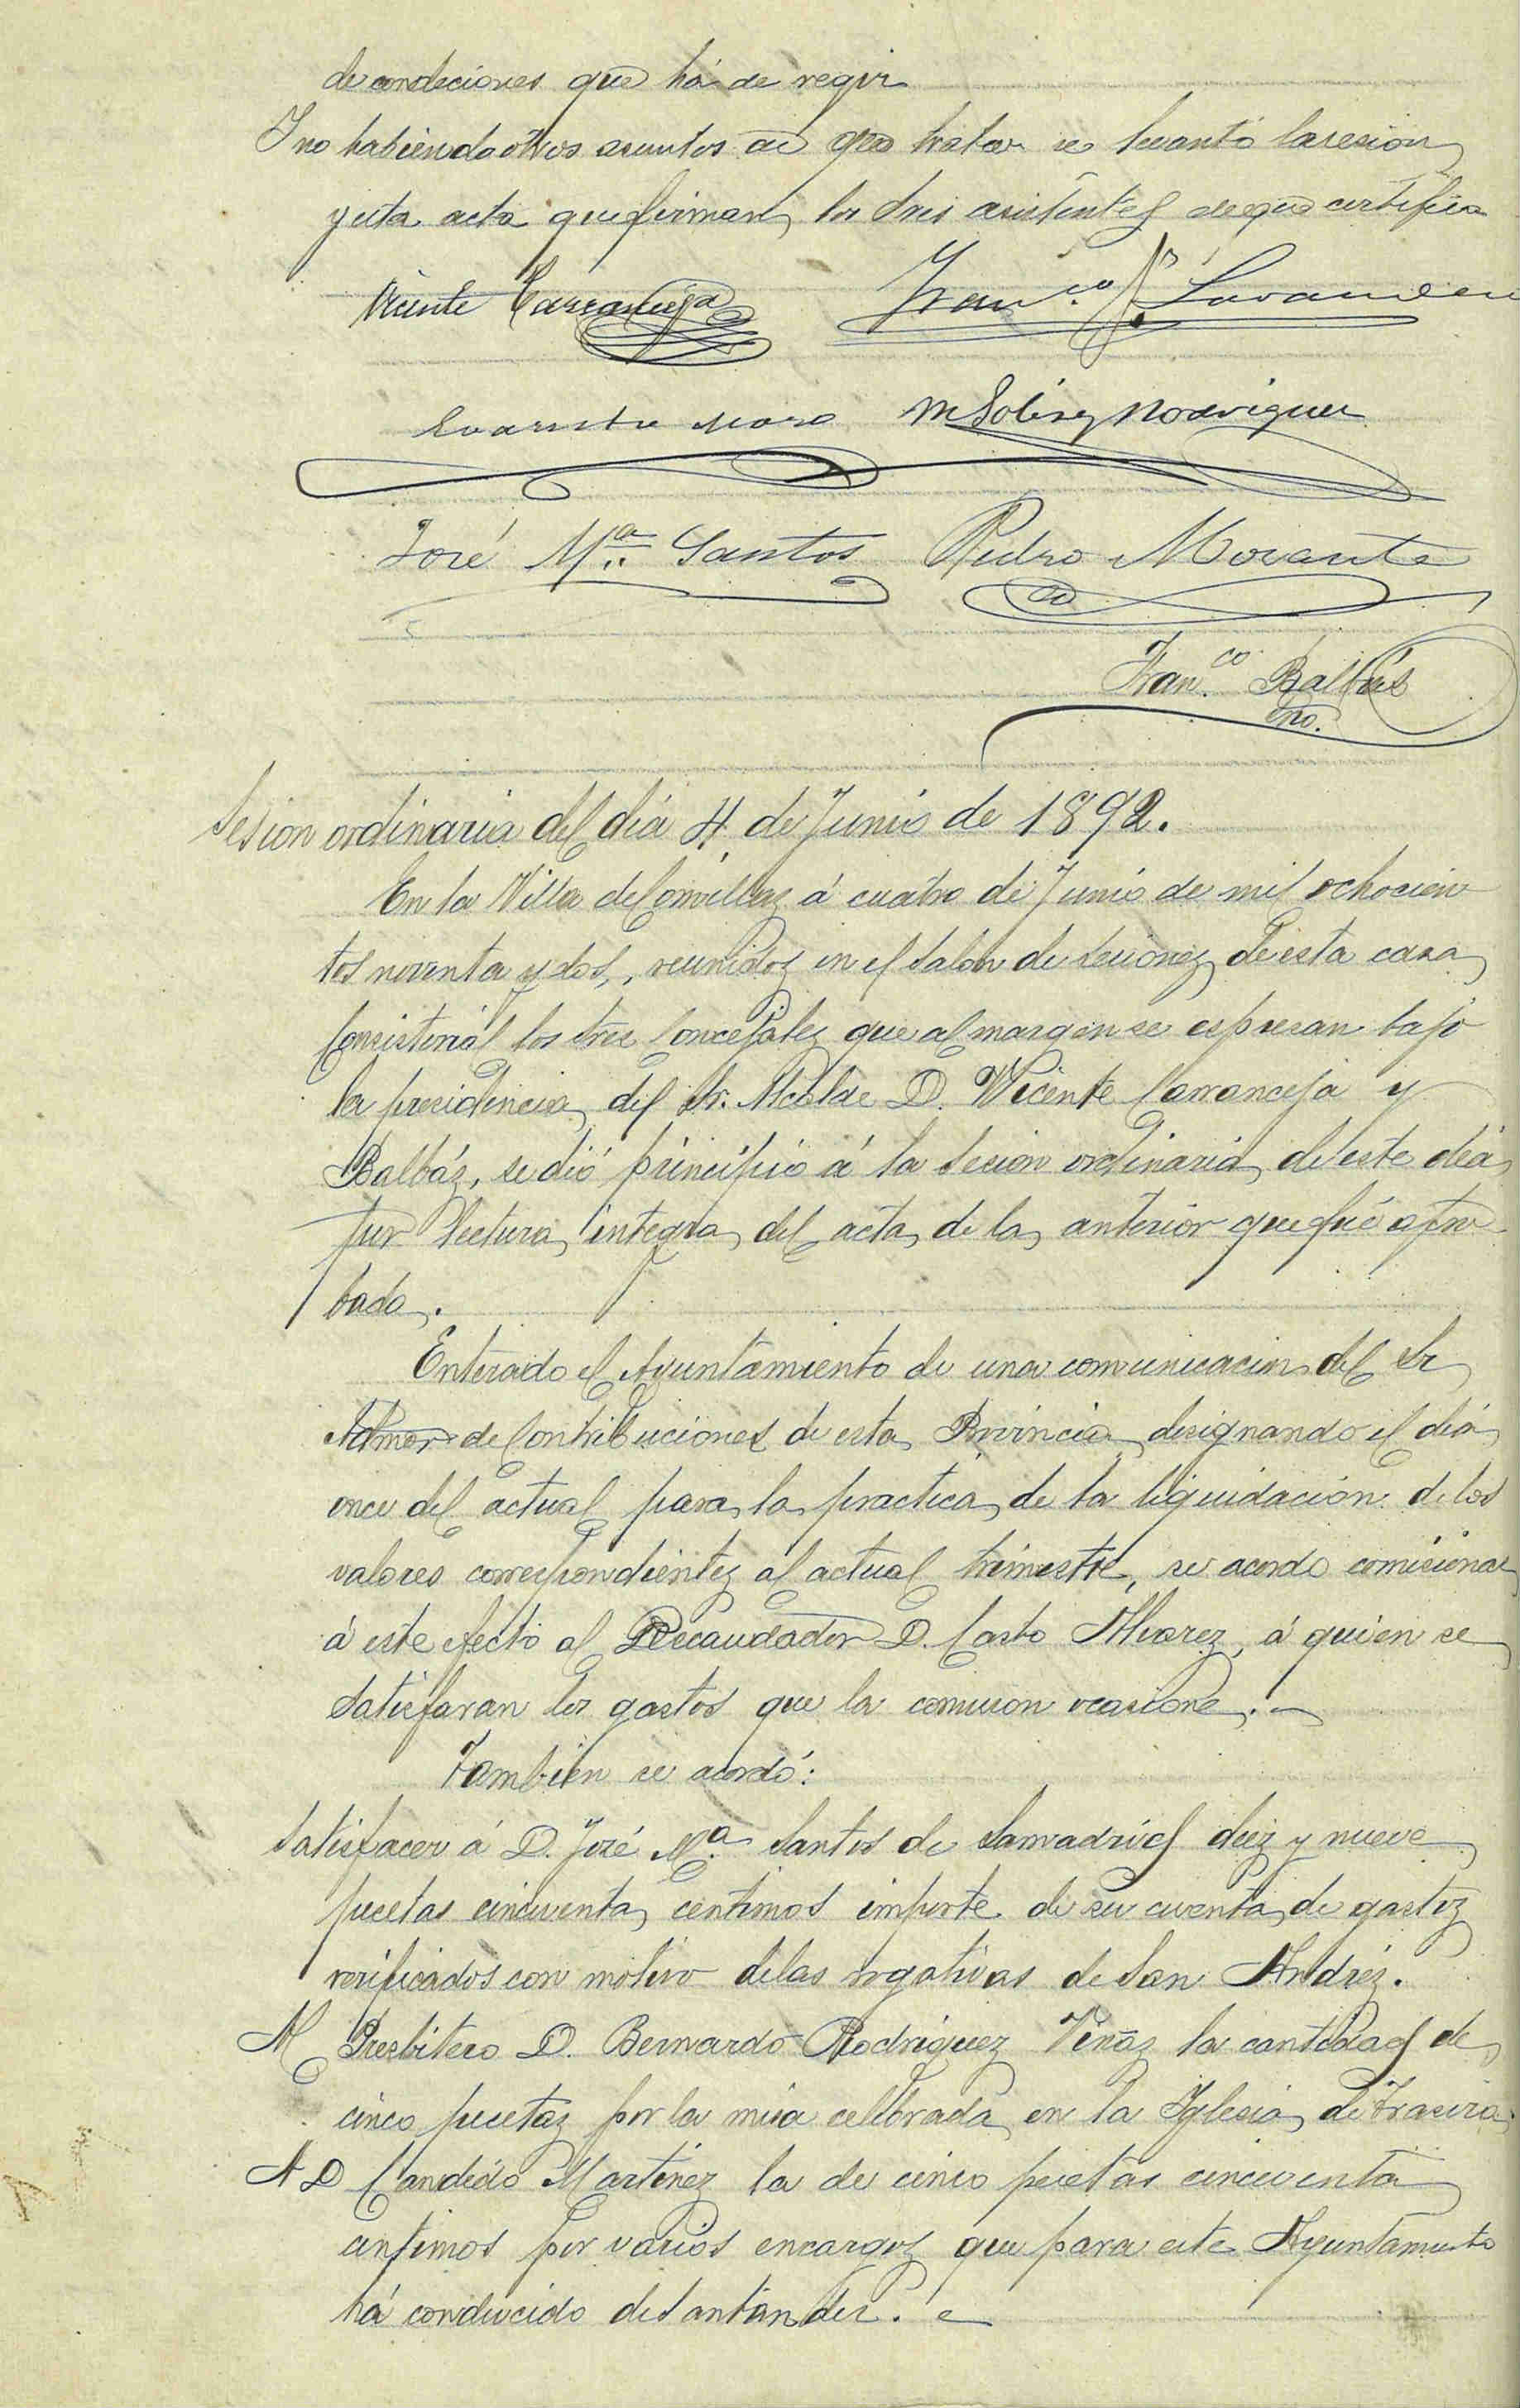 de condiciones que há de regir
Y no habiendo otros asuntos de que tratar se levantó la sesion
y esta acta que firman los Sres asistentes de que certifico
Vicente Carranceja Fran.co
M Solis y Rodriguez
José M.ª Santos Pedro Morante
Fran.co Balbás
Srio.
Sesion ordinaria del dia 4 de Junio de 1892.
En la Villa de Comillas á cuatro de Junio de mil ochocien
tos noventa y dos, reunidos en el Salon de sesiones de esta casa
Consistorial los Sres Concejales que al margen se espresan bajo
la presidencia del Sr. Alcalde D. Vicente Carranceja y
Balbás, se dió principio á la Sesion ordinaria de este dia
por lectura integra del acta de la anterior que fué apro
bada.
Enterado el Ayuntamiento de una comunicacion del Sr
Admor de Contribuciones de esta Provincia designando el dia
once del actual para la practica de la liquidación de los
valores correspondientes al actual trimestre, se acordo comisionar
á este efecto al Recaudador D. Casto Alvarez, á quien se
satisfaran los gastos que la comision ocasione.
Tambien se acordó:
Satisfacer á D. José M.ª Santos de Lamadrid diez y nueve
pesetas cincuenta centimos importe de su cuenta de gastos
verificados con motivo de las rogativas de San Andrés.
Al Presbitero D. Bernardo Rodriguez Viñas la cantidad de
cinco pesetas por la misa celebrada en la Iglesia de Trasvia.
A D Candido Martinez la de cinco pesetas cincuenta
centimos por varios encargos que para este Ayuntamiento
há conducido de Santander.